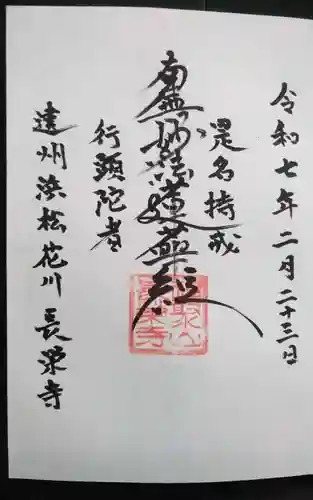 令和七年二月二十三日
是名持戒
南無妙法蓮華経
行頭陀者
遠州浜松花川 長栄寺